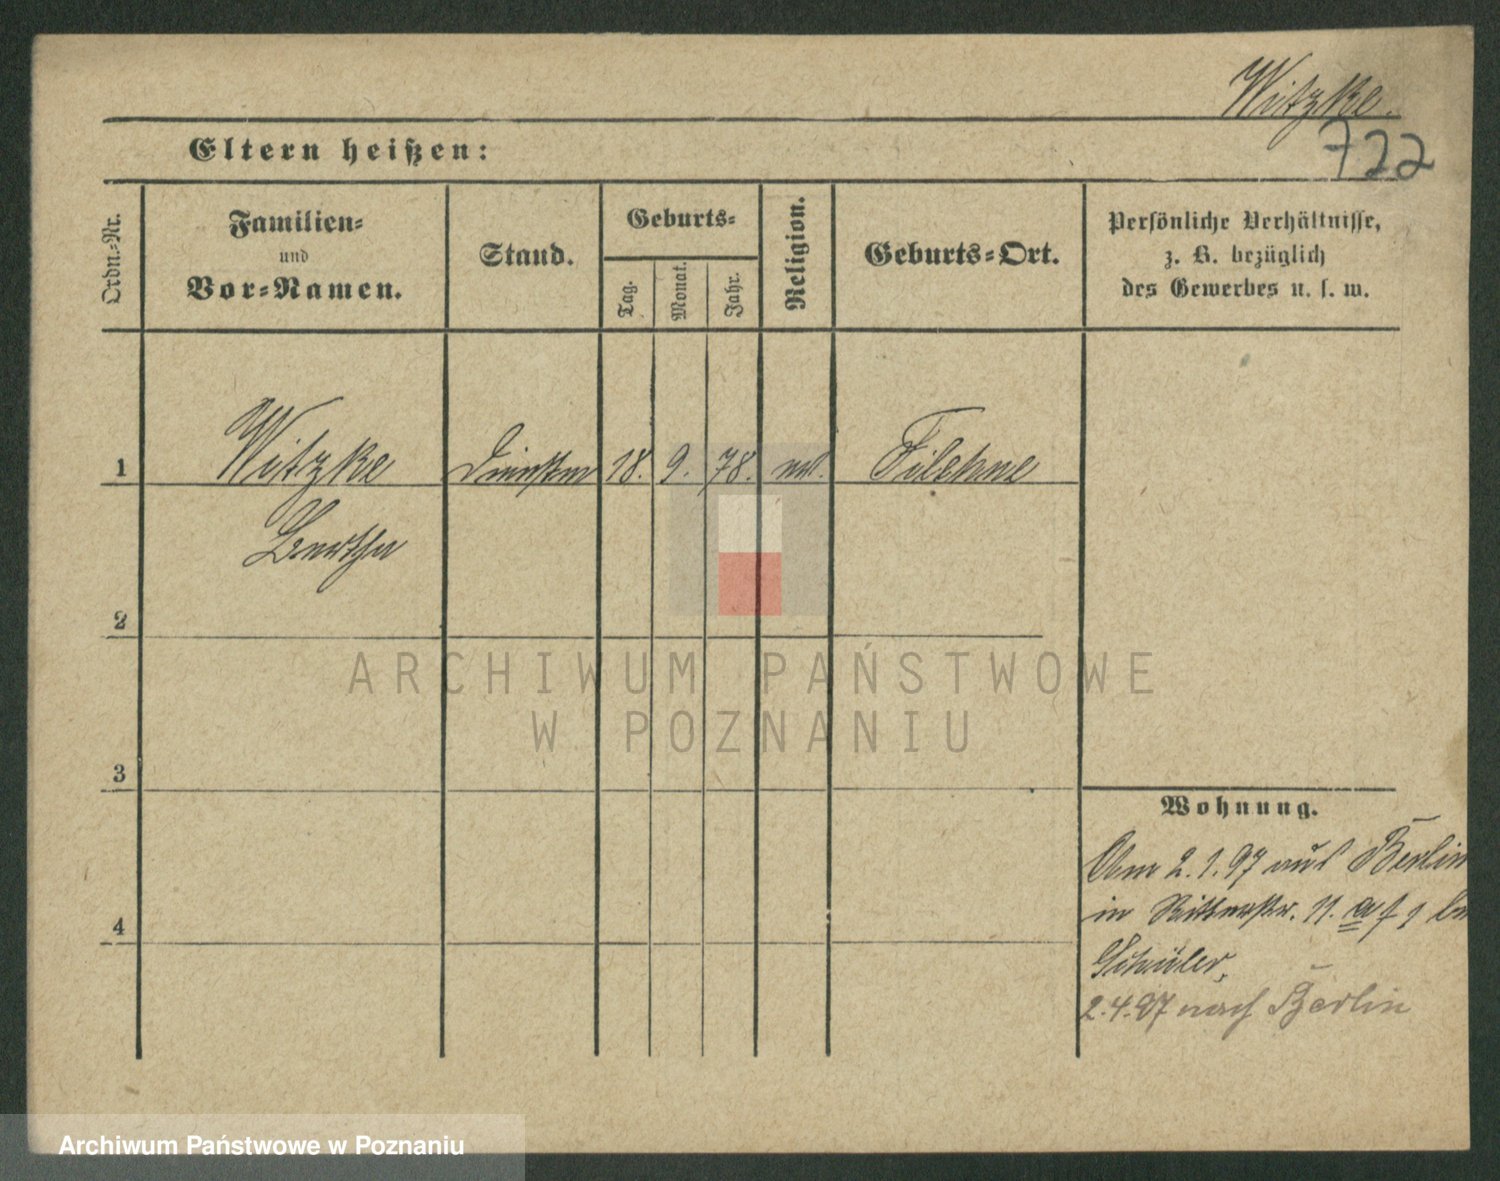 Witzke.
722
Eltern heißen:
Ordn.-Nr.
Familien-
und
Vor-Namen.
Stand.
Geburts-
Tag.
Monat.
Jahr.
Religion.
Geburts-Ort.
Persönliche Verhältnisse,
z. B. bezüglich
des Gewerbes u. s. w.
1
Witzke
18. 9. 78.
Filehne
Bertha
2
3
4
Wohnung.
Am 2.1.97 aus Berlin
in Ritterstr. 11.
Schüler,
2.4.97 nach Berlin
ARCHIWUM PAŃSTWOWE
W POZNANIU
Archiwum Państwowe w Poznaniu